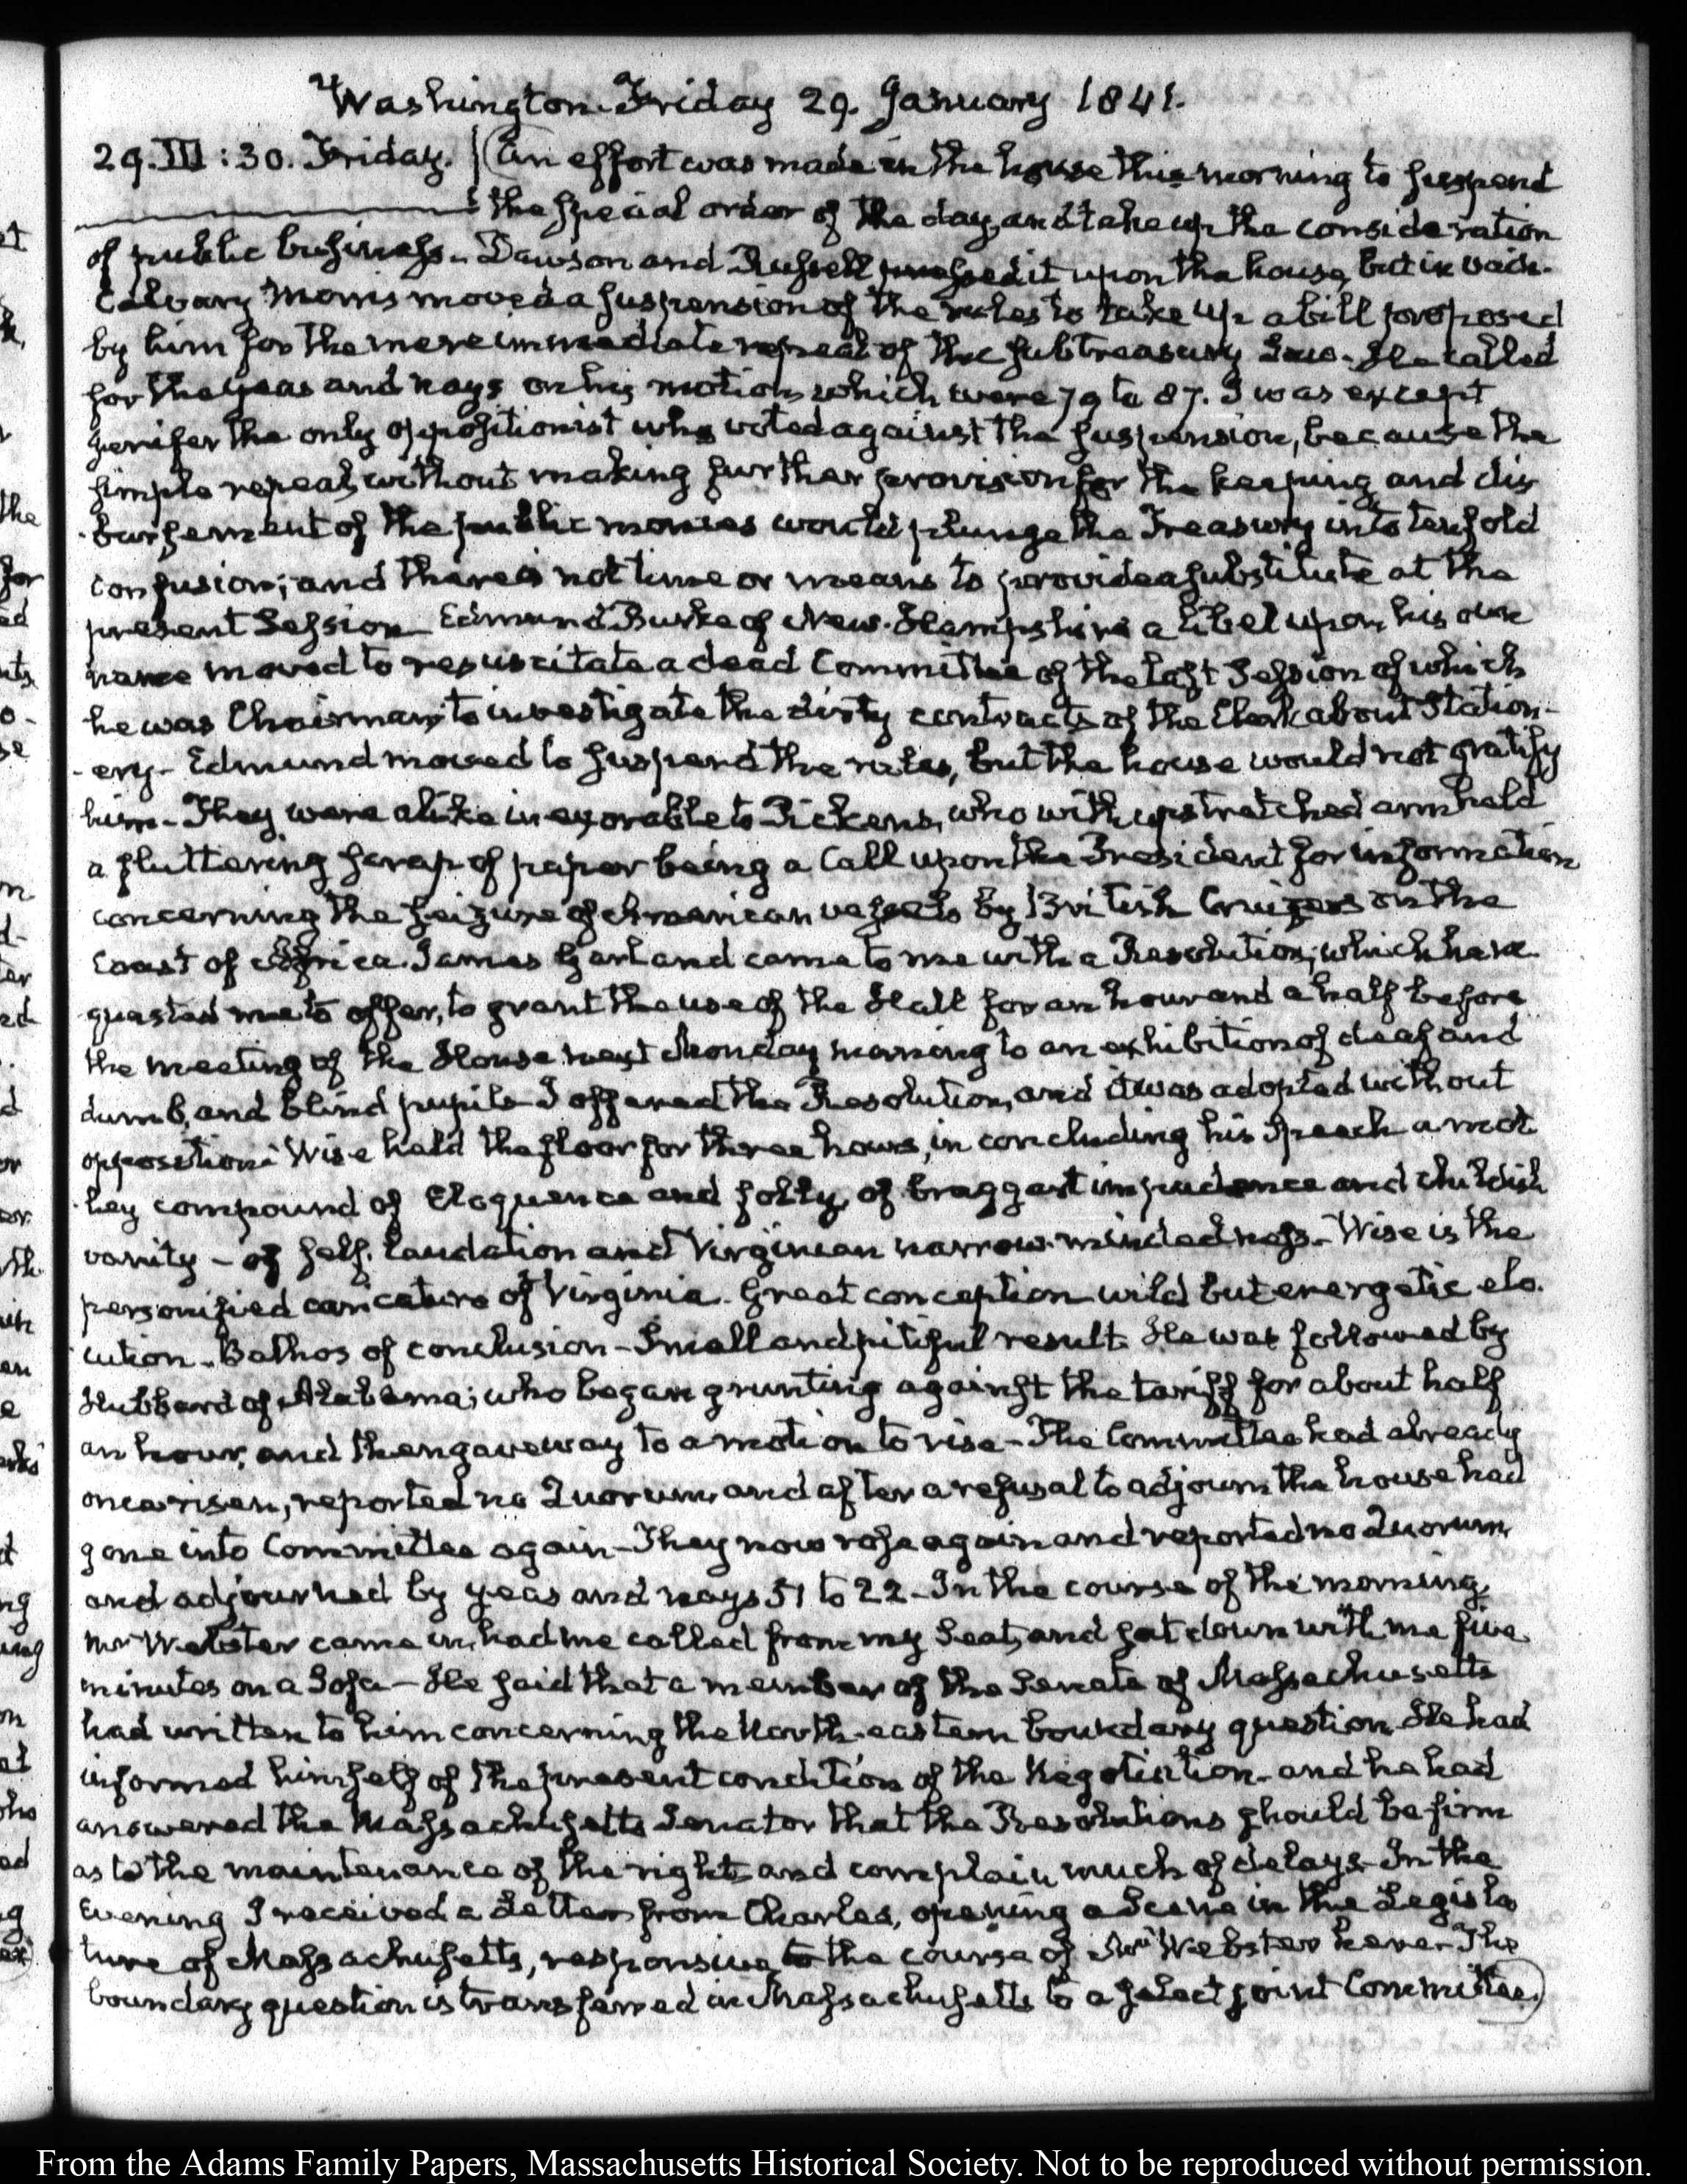 Washington Friday 29. January 1841.
29. III:30. Friday. (An effort was made in the house this morning to suspend
the special order of the day, and take up the consideration
of public business. Dawson and Russell pressed it upon the house, but in vain.
Calvary Morris moved a suspension of the rules to take up a bill proposed
by him for the mere immediate repeal of the subtreasury Law. He called
for the yeas and nays on his motion which were 79 to 87. I was except
Jenifer the only oppositionist who voted against the suspension, because the
simple repeal, without making further provision for the keeping and dis
-bursement of the public monies would plunge the Treasury into tenfold
confusion; and there is not time or means to provide a substitute at the
present Session. Edmund Burke of New-Hampshire a libel upon his own
name moved to resuscitate a dead Committee of the last Session of which
he was Chairman, to investigate the dirty contracts of the Clerk about Station-
-ery- Edmund moved to suspend the rules, but the house would not gratify
him- They were alike inexorable to Pickens, who with upstretched arm held
a fluttering scrap of paper being a Call upon the President for information
concerning the seizure of American vessels by British Cruizers on the
Coast of Africa. James Garland came to me with a Resolution, which he re
quested me to offer, to grant the use of the Hall for an hour and a half before
the meeting of the House next Monday morning to an exhibition of deaf and
dumb, and blind pupils- I offered the Resolution, and it was adopted without
opposition- Wise held the floor for three hours, in concluding his Speech a mot
-ley compound of Eloquence and folly, of braggart impudence and childish
vanity - of self-laudation and Virginian narrow-mindedness- Wise is the
personified caricature of Virginia- Great conception wild but energetic elo-
cution- Bathos of conclusion- Small and pitiful result. He was followed by
Hubbard of Alabama; who began grunting against the tariff for about half
an hour, and then gave way to a motion to rise- The Committee had already
once risen, reported no Quorum, and after a refusal to adjourn the house had
gone into Committee again- They now rose again and reported no Quorum,
and adjourned by yeas and nays 51 to 22- In the course of the morning,
Mr Webster came in, had me called from my Seat, and sat down with me five
minutes on a Sofa- He said that a member of the Senate of Massachusetts
had written to him concerning the North-eastern boundary question- He had
informed himself of the present condition of the Negotiation- and he had
answered the Massachusetts Senator that the Resolutions should be firm
as to the maintenance of the right, and complain much of delays- In the
Evening I received a Letter from Charles, opening a Scene in the Legisla
ture of Massachusetts, responsive to the course of Mr Webster here- The
boundary question is transferred in Massachusetts to a select joint Committee.)
From the Adams Family Papers, Massachusetts Historical Society. Not to be reproduced without permission.